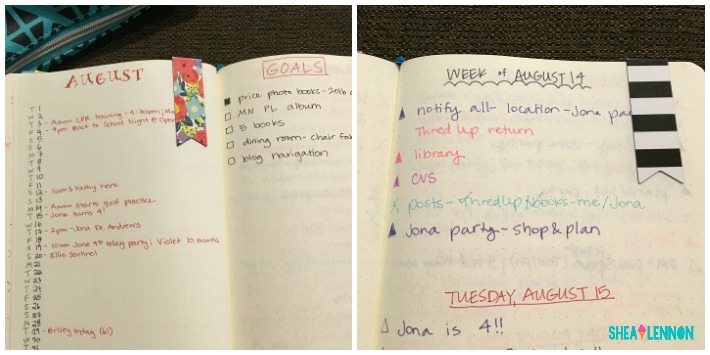 AUGUST
T 1
W 2
T 3 - Aaron CPR training - 4:30pm;
F 4 - 4pm Back to School Night @
S 5
S 6
M 7
T 8
W 9
T 10
F 11
S 12 - Sam & Kathy here
S 13
M 14 - Aaron starts golf practice
T 15 - Jona turns 4!
W 16
T 17 - 2pm - Jona Dr. Andrews
F 18
S 19 - 10am Jona 4th bday party; Violet 10 months
S 20 - Ellie Sentinel
M 21
T 22
W 23
T 24
F 25
S 26
S 27
M 28
T 29 - Briley bday (61)
W 30
T 31
GOALS
price photo books - 2016
MN PL album
5 books
dining room - chair
blog navigation
WEEK of AUGUST 14
notify alt. location - Jona
Thred Up return
library
CVS
X posts - thredUP, books - me/Jona
Jona party - shop & plan
TUESDAY, AUGUST 15
Jona is 4!!
SHEA LENNON